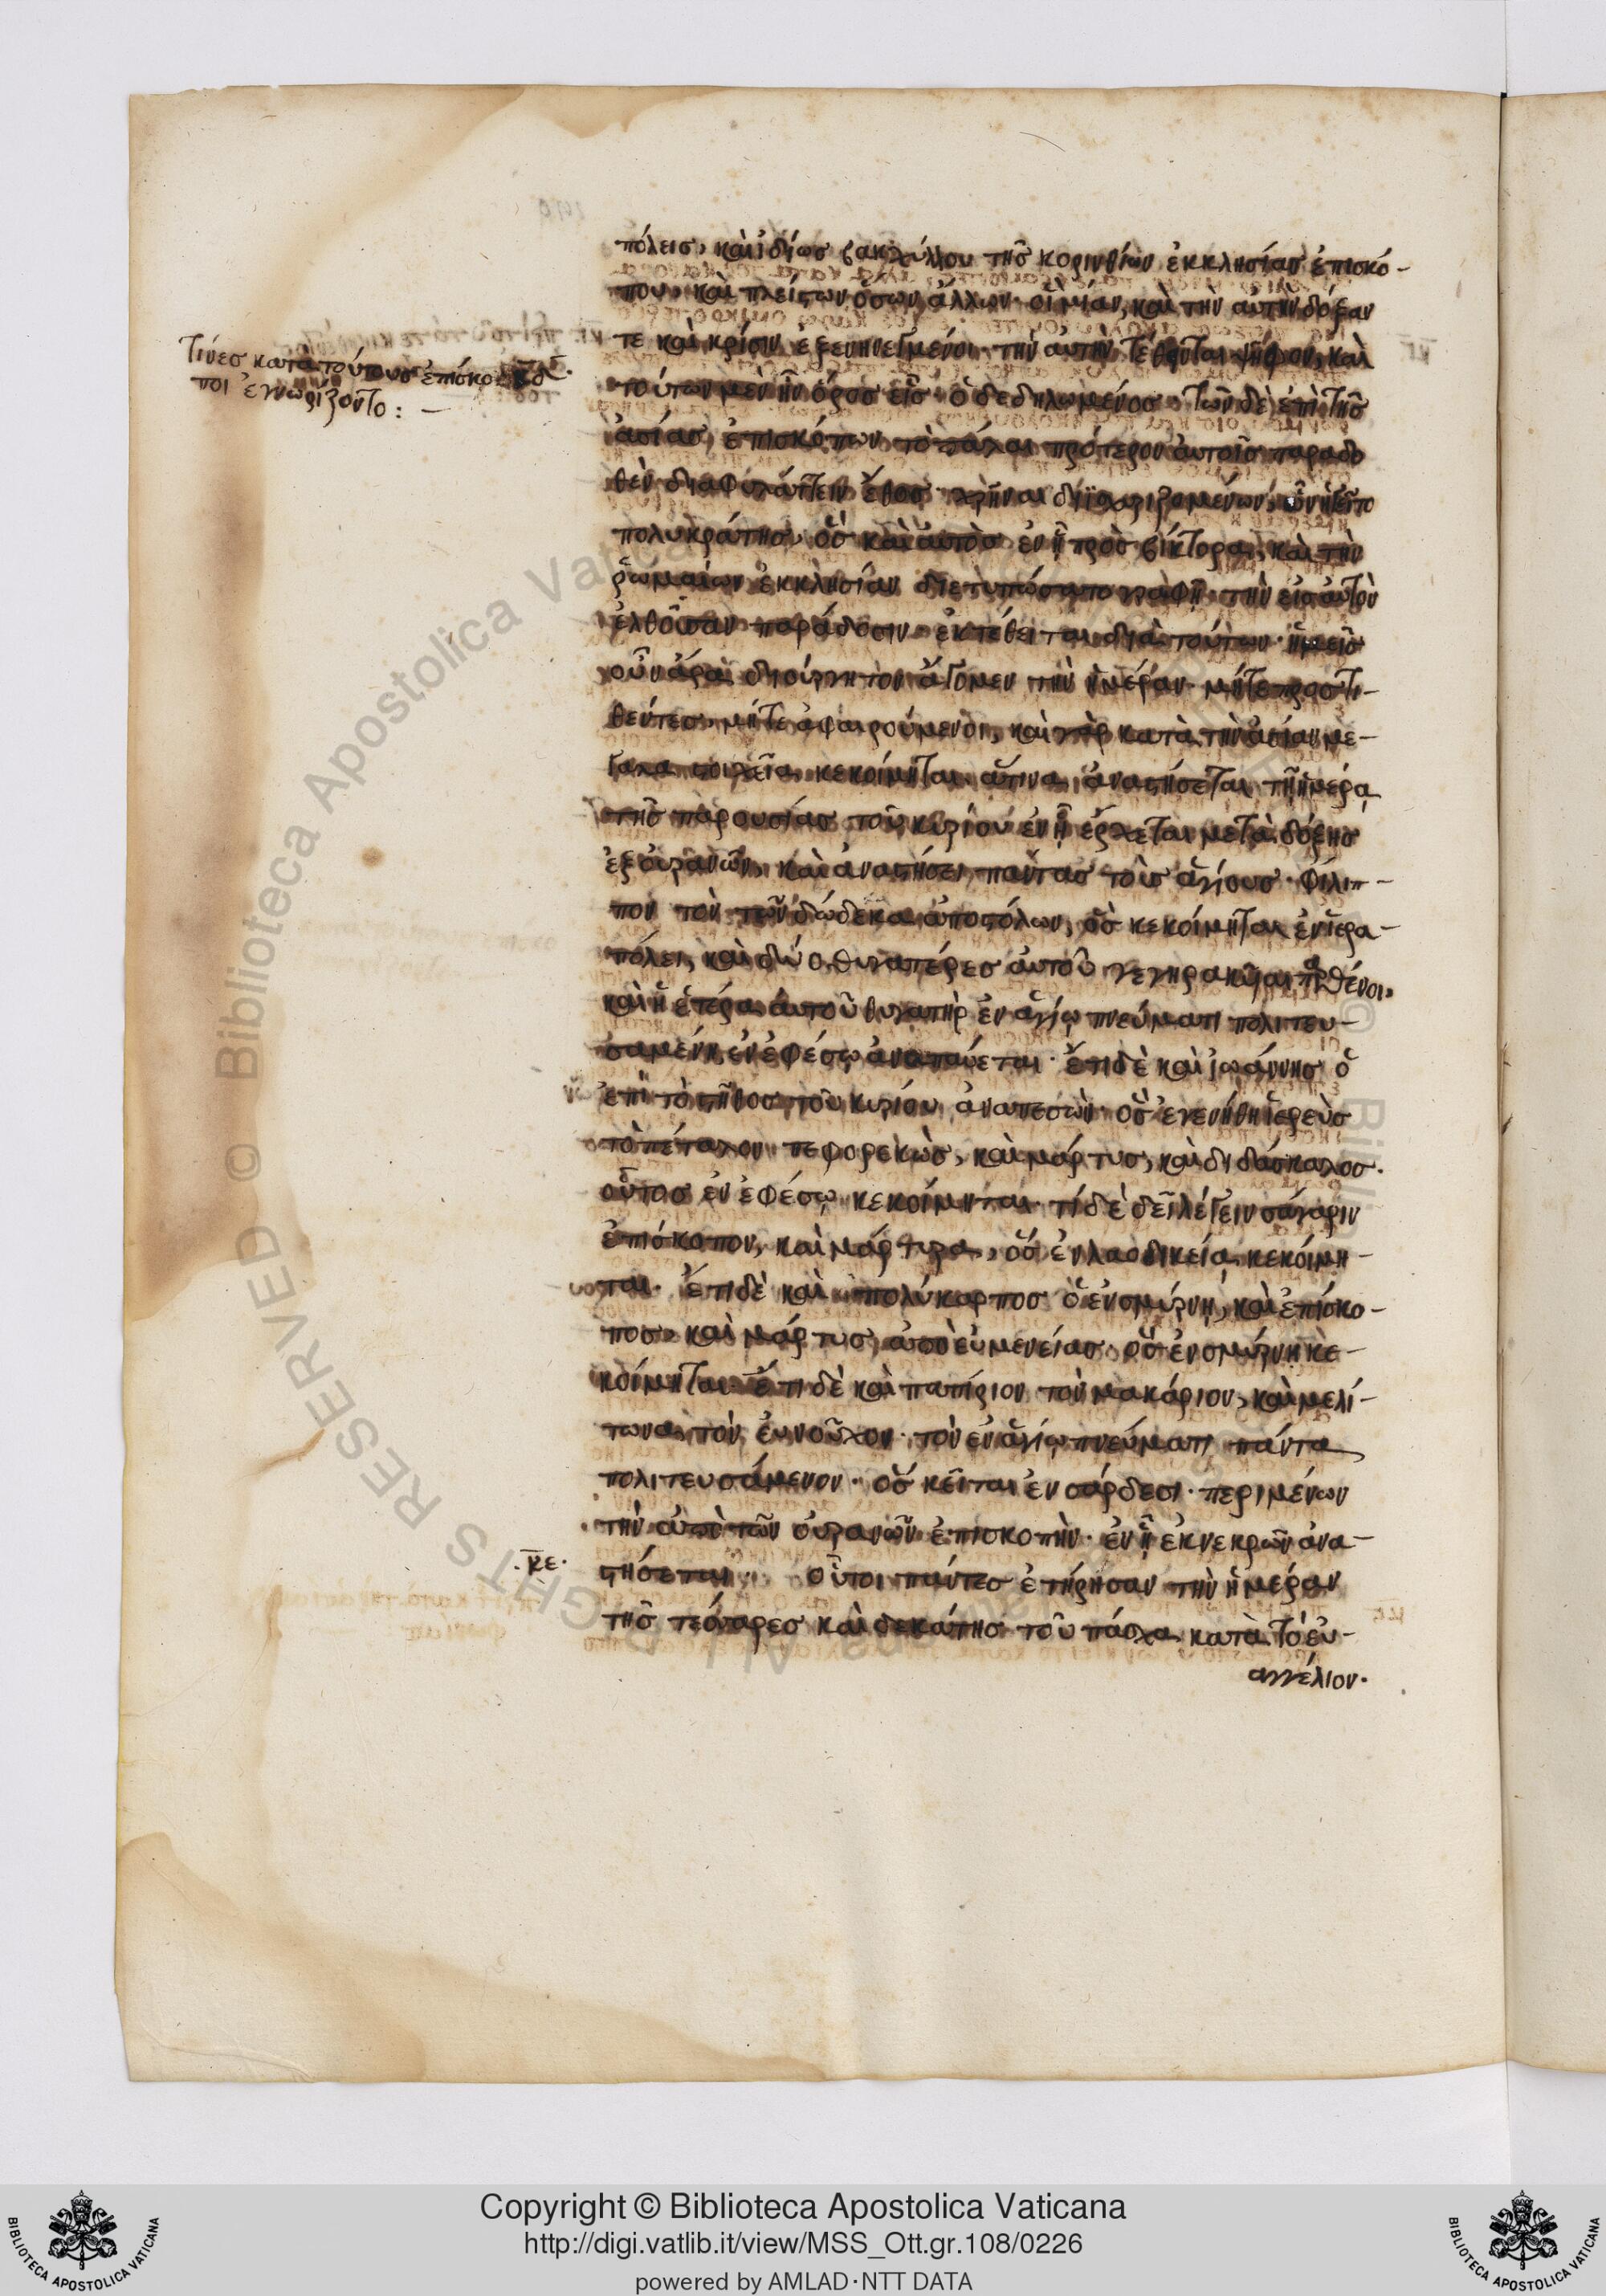 πόλεις, καὶ ἰδίως βακχύλλου τῆς κορινθίων ἐκκλησίας ἐπισκό-
που, καὶ πλείστων ὅσων ἄλλων· οἳ μίαν, καὶ τὴν αὐτὴν δόξαν
τε καὶ κρίσιν ἐξενηνεγμένοι· τὴν αὐτὴν τέθεινται ψῆφον, καὶ
Τίνες κατὰ τούτους ἐπίσκο-
ποι ἐγνωρίζοντο: –
κδ
τούτων μὲν ἦν ὅρος εἷς· ὁ δεδηλωμένος· τῶν δὲ ἐπὶ τῆς
ἀσίας ἐπισκόπων τὸ πάλαι πρότερον αὐτοῖς παραδο
θὲν διαφυλάττειν ἔθος· χρῆναι διϊσχυριζομένων, ὧν ἡγεῖτο
πολυκράτης, ὃς καὶ αὐτὸς ἐν ᾗ πρὸς βίκτορα, καὶ τὴν
ῥωμαίων ἐκκλησίαν διετυπώσατο γραφῇ· τὴν εἰς αὐτὸν
ἐλθοῦσαν παράδοσιν ἐκτέθειται διὰ τούτων· ἡμεῖς
οὖν ἀρα διούργητον ἄγομεν τὴν ἡμέραν· μήτε προστι-
θέντες, μήτε ἀφαιρούμενοι, καὶ γὰρ κατὰ τὴν ἀσίαν με-
γαλα στοιχεῖα κεκοίμηται, ἅτινα ἀναστήσεται τῇ ἡμέρᾳ
τῆς παρουσίας τοῦ κυρίου ἐν ᾗ ἔρχεται μετὰ δόξης
ἐξ οὐρανῶν, καὶ ἀναστήσει πάντας τοὺς ἁγίους· φίλιπ-
πον τὸν τῶν δώδεκα ἀποστόλων, ὃς κεκοίμηται ἐν ἱερα-
πόλει, καὶ δύο θυγατέρες αὐτοῦ γεγηρακῦιαι παρθένοι,
καὶ ἡ ἑτέρα αὐτοῦ θυγατὴρ ἐν ἁγίῳ πνεύματι πολιτευ-
σαμένη, ἐν ἐφέσῳ ἀναπαύεται· ἔτι δὲ καὶ ἰωάννης ὁ
ἐπὶ τὸ στῆθος τοῦ κυρίου ἀναπεσών· ὃς ἐγενήθη ἱερεὺς
τὸ πέταλον πεφορεκὼς, καὶ μάρτυς, καὶ διδάσκαλος.
οὗτος ἐν ἐφέσῳ κεκοίμηται· τί δὲ δεῖ λέγειν σάγαριν
ἐπίσκοπον, καὶ μάρτυρα, ὃς ἐν λαοδικείᾳ κεκοίμη-
ται. ἔτι δὲ καὶ πολύκαρπος ὁ ἐν σμύρνῃ, καὶ ἐπίσκο-
πος, καὶ μάρτυς, ἀπὸ εὐμενείας, ὃς ἐν σμύρνῃ κε-
κοίμηται· ἔτι δὲ καὶ παπίριον τὸν μακάριον, καὶ μελί-
τωνα τὸν εὐνοῦχον· τὸν ἐν ἁγίῳ πνεύματι πάντα
πολιτευσάμενον· ὃς κεῖται ἐν σάρδεσι· περιμένων
τὴν ἀπὸ τῶν οὐρανῶν ἐπισκοπὴν· ἐν ᾗ ἐκ νεκρῶν ἀνα-
·κε· στήσεται· οὗτοι πάντες ἐτήρησαν τὴν ἡμέραν
τῆς τεσσαρες καὶ δεκάτης τοῦ πάσχα κατὰ τὸ εὐ-
αγγέλιον.
© Biblioteca Apostolica Vaticana
ALL RIGHTS RESERVED
Copyright © Biblioteca Apostolica Vaticana
http://digi.vatlib.it/view/MSS_Ott.gr.108/0226
powered by AMLAD·NTT DATA
BIBLIOTECA APOSTOLICA VATICANA
BIBLIOTECA APOSTOLICA VATICANA